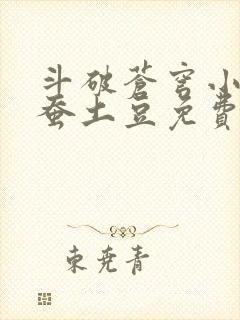 斗破苍穹小
蚕土豆免費
東尭青